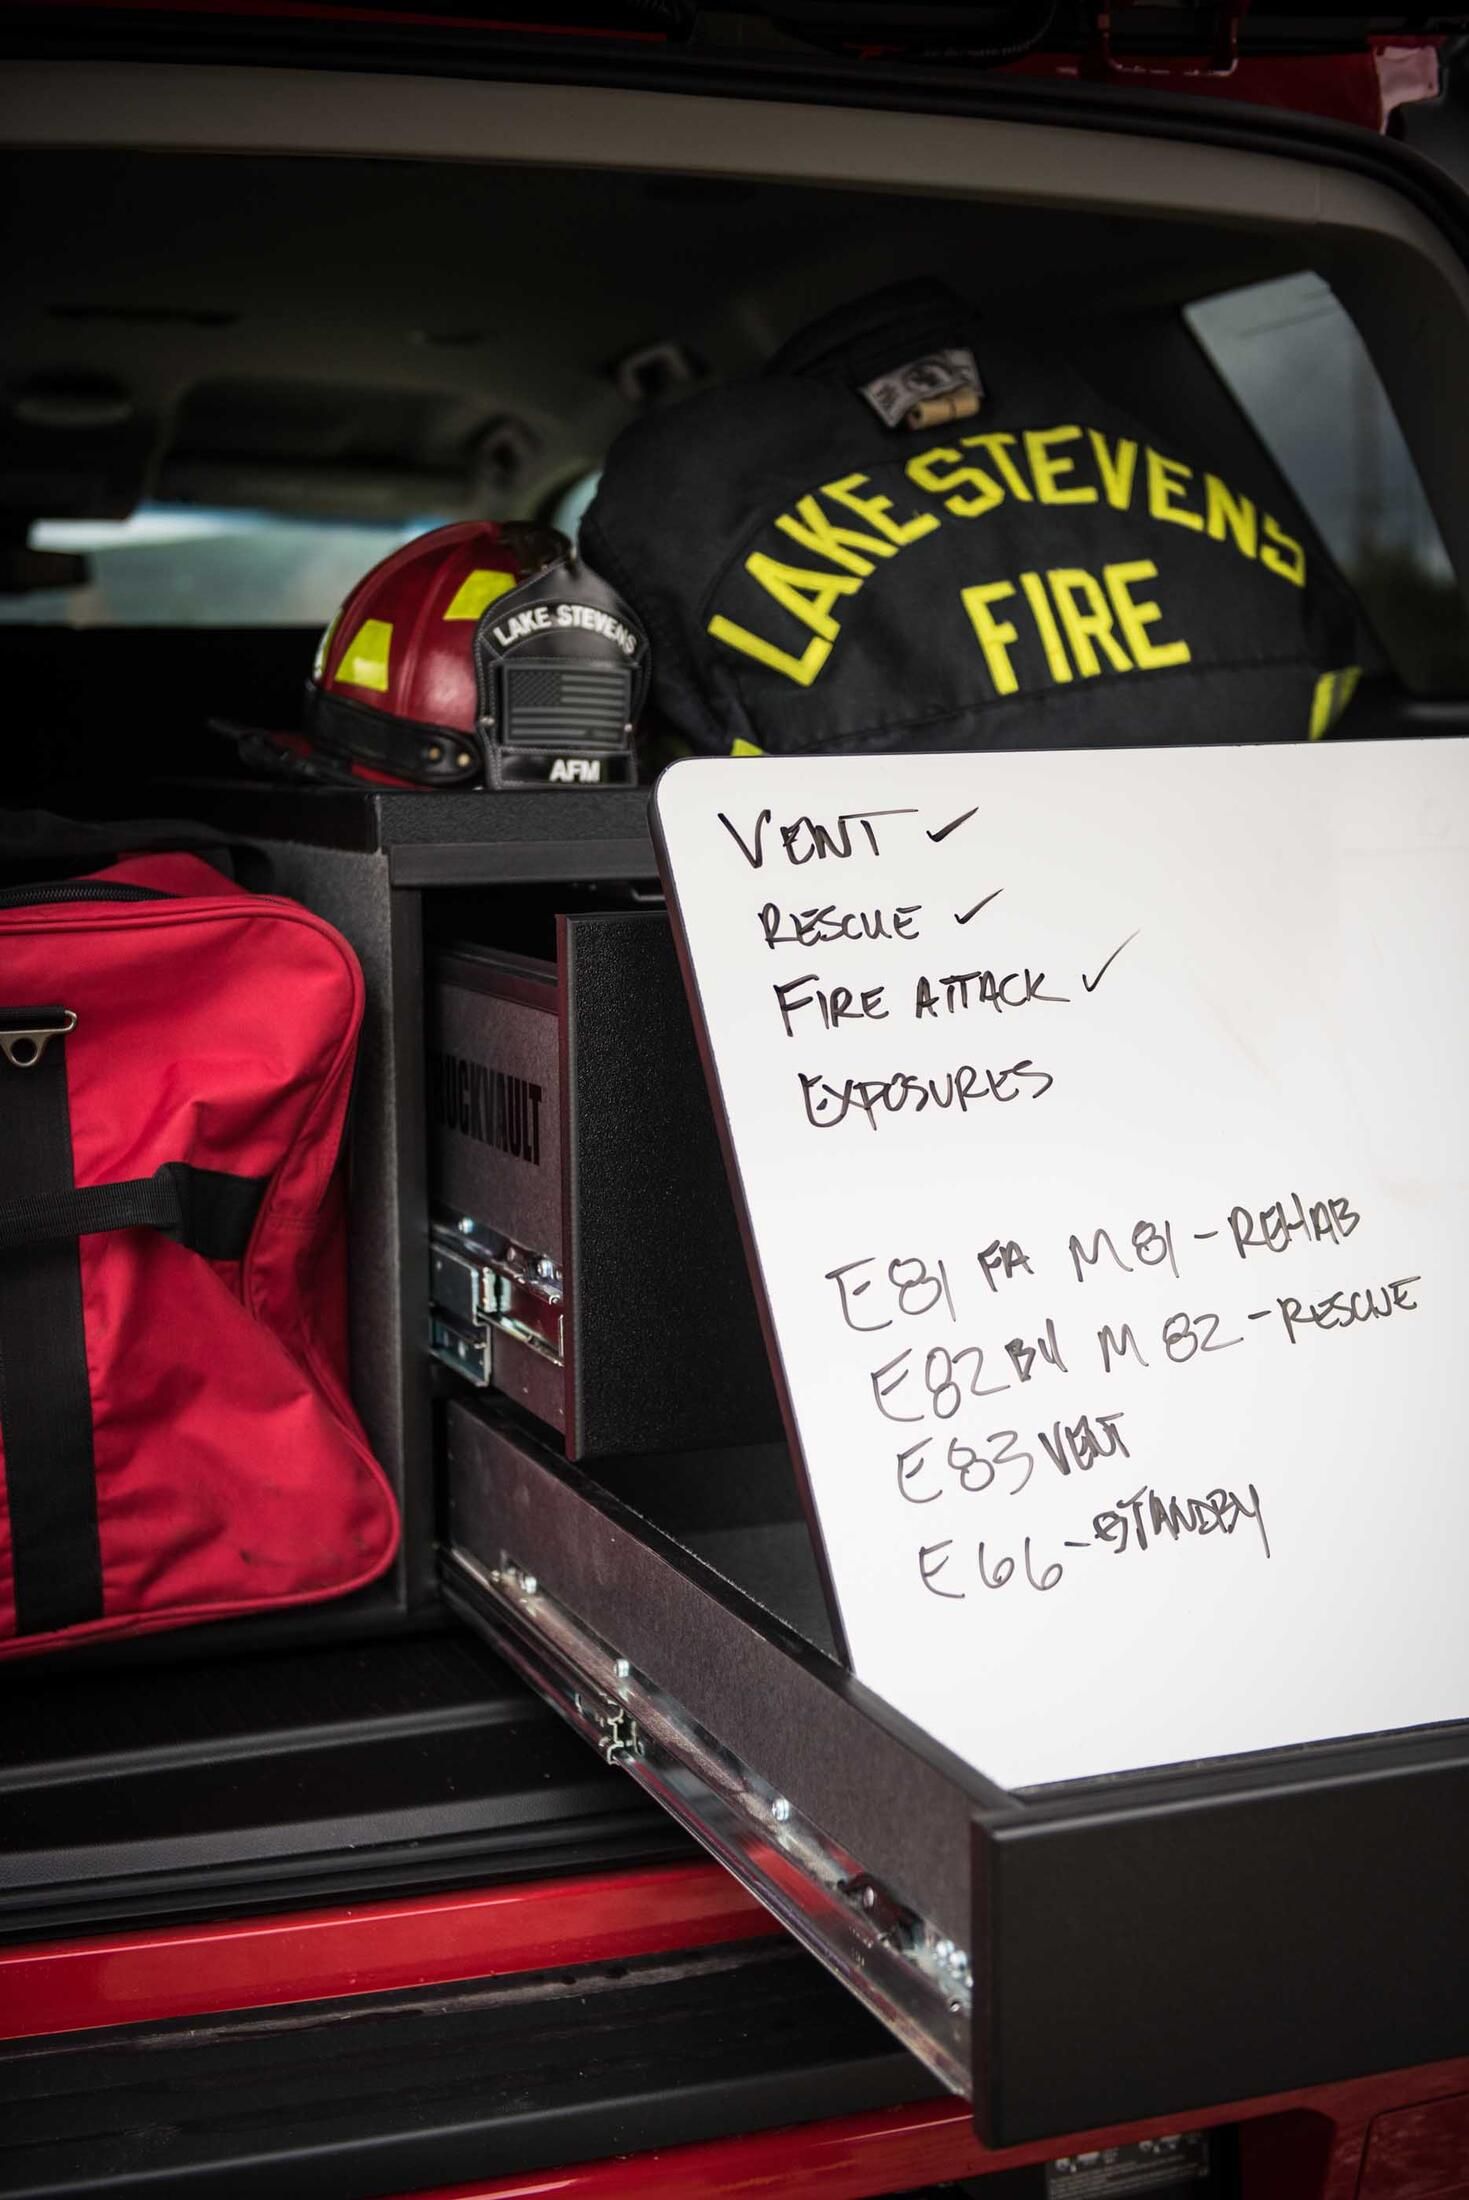 LAKE STEVENS
FIRE
LAKE STEVENS
AFM
VENT ✓
RESCUE ✓
FIRE ATTACK ✓
EXPOSURES
UCKVAULT
E81 FA M81-REHAB
E82 BU M82-RESCUE
E83 VENT
E66-STANDBY